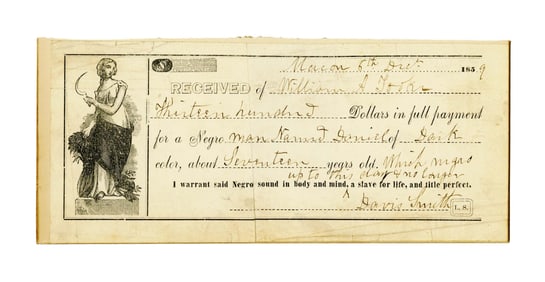 Macon 6th Decr 1859
RECEIVED of William A.
Thirteen hundred Dollars in full payment
for a Negro man Named Daniel of Dark
color, about Seventeen years old. Which negro
up to this day & no longer
I warrant said Negro sound in body and mind, a slave for life, and title perfect.
Davis Smith L. S.